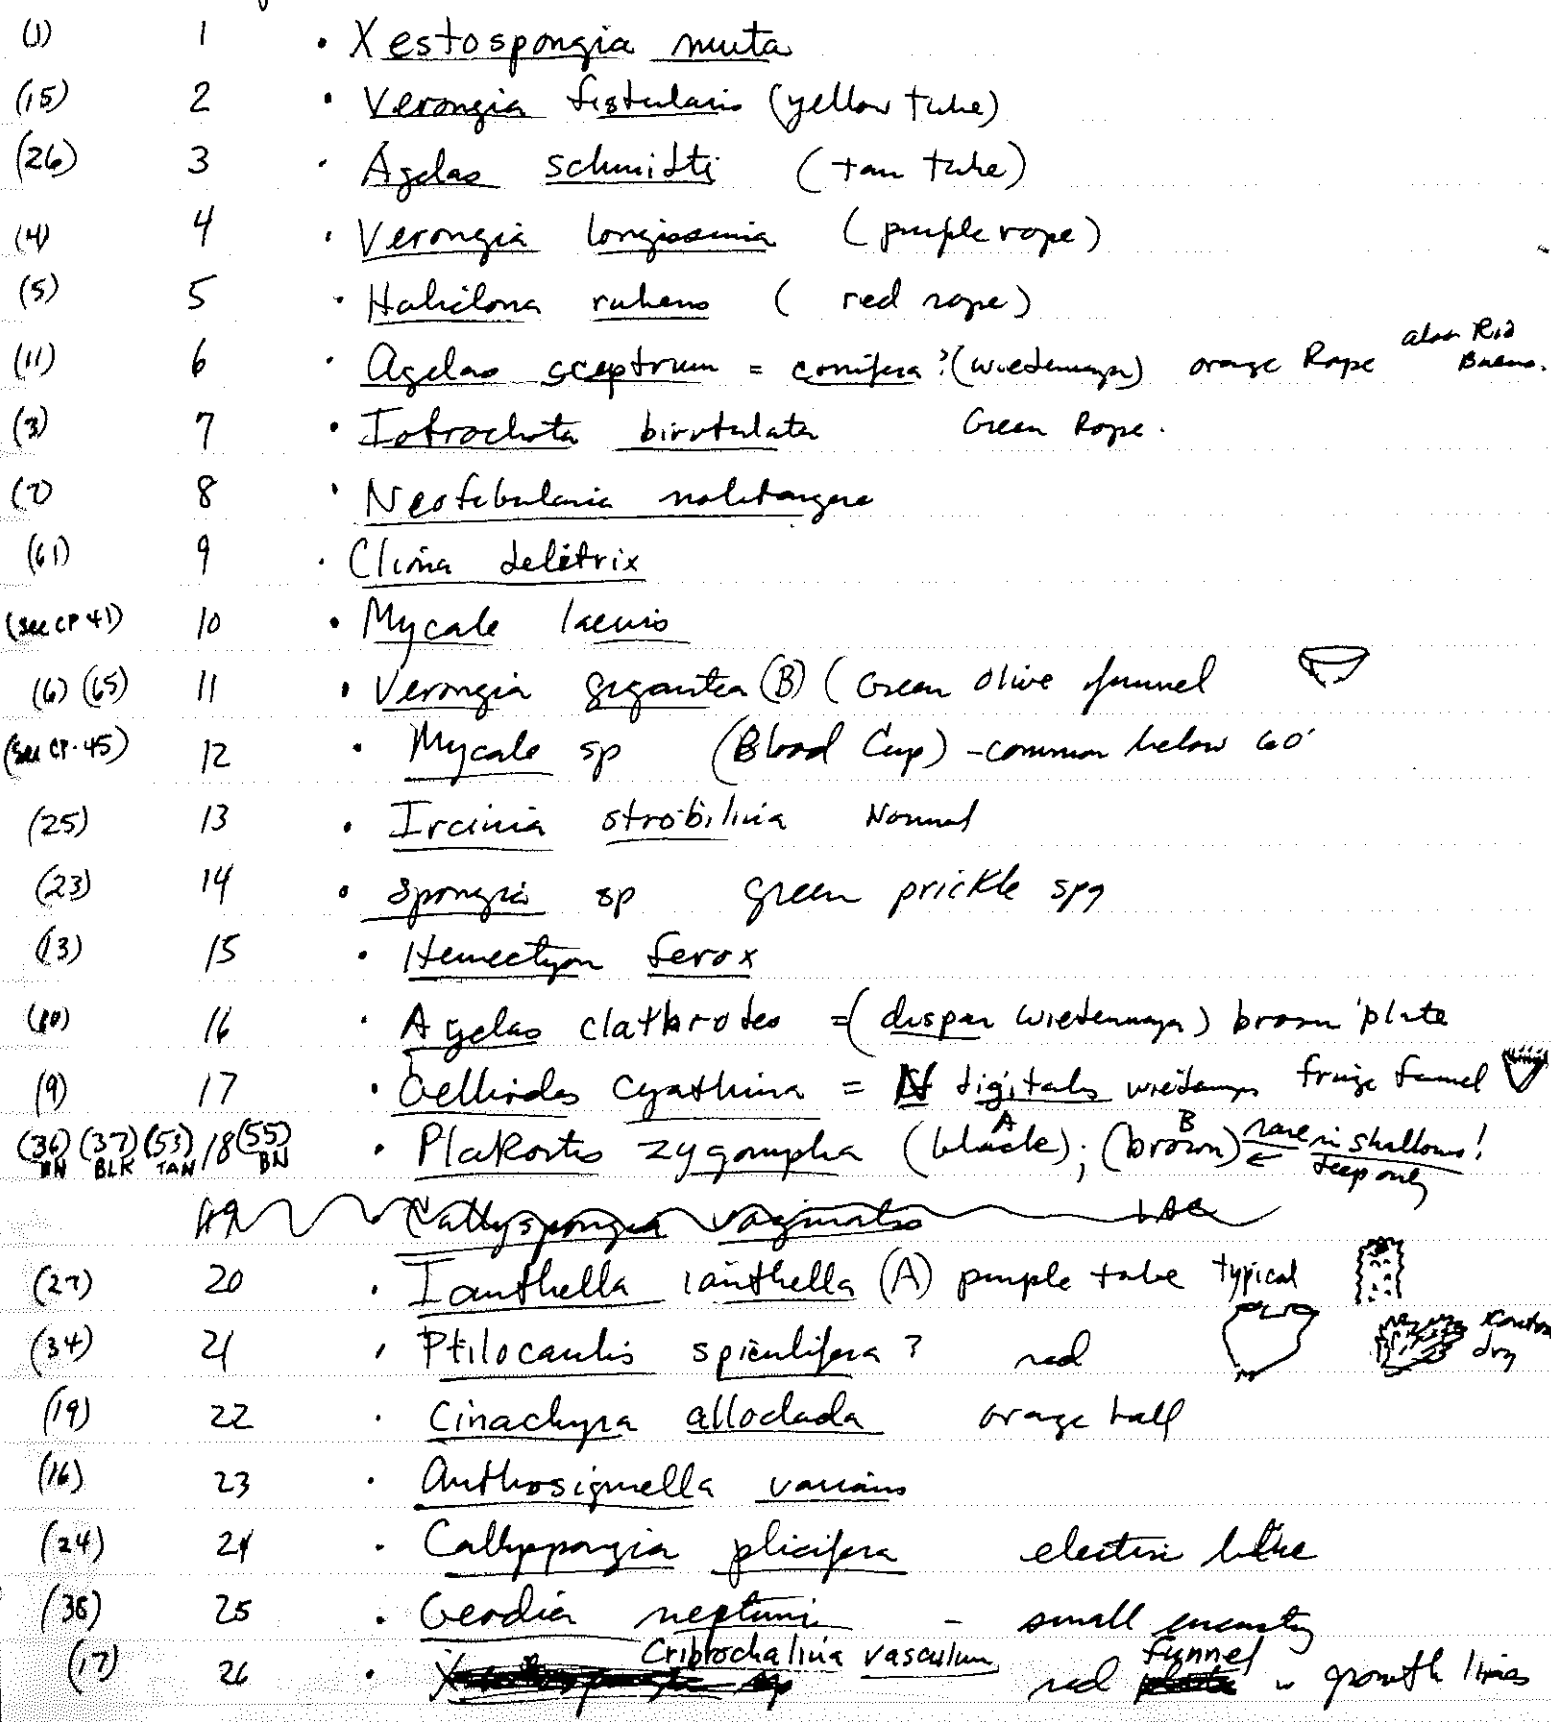 (1) 1 · Xestospongia muta
(15) 2 · Verongia fistularis (yellow tube)
(26) 3 · Agelas schmidti (tan tube)
(4) 4 · Verongia longissima (purple rope)
(5) 5 · Haliclona rubens (red rope)
(11) 6 · Agelas sceptrum = conifera? (Wiedenmayer) orange Rope also Rio Bueno.
(3) 7 · Iotrochota birotulata Green Rope.
8 · Neofibularia nolitangere
(61) 9 · Cliona delitrix
(see CP 41) 10 · Mycale laevis
(6) (65) 11 · Verongia gigantea (B) (Green olive funnel
(see CP-45) 12 · Mycale sp (Blood Cup) - common below 60'
(25) 13 · Ircinia strobilina Normal
(23) 14 · Spongia sp green prickle spg
(13) 15 · Hemectyon ferox
(10) 16 · Agelas clathrodes = (dispar Wiedenmayer) brown plate
(9) 17 · Gelliodes cyathina = digitalis wiedenmayer fringe funnel
(36) BN (37) BLK (53) TAN 18 (55) BN · Plakortis zygompha (black) A; (brown) B ← rare in shallows! deep only
19 Callyspongia vaginalis
(27) 20 · Ianthella ianthella (A) purple tube typical
(34) 21 · Ptilocaulis spiculifera? red dry
(19) 22 · Cinachyra alloclada orange ball
(16) 23 · Anthosigmella varians
(24) 24 · Callyspongia plicifera electric blue
(38) 25 · Geodia neptuni - small encrusting
(17) 26 · Cribrochalina vasculum red funnel w growth lines